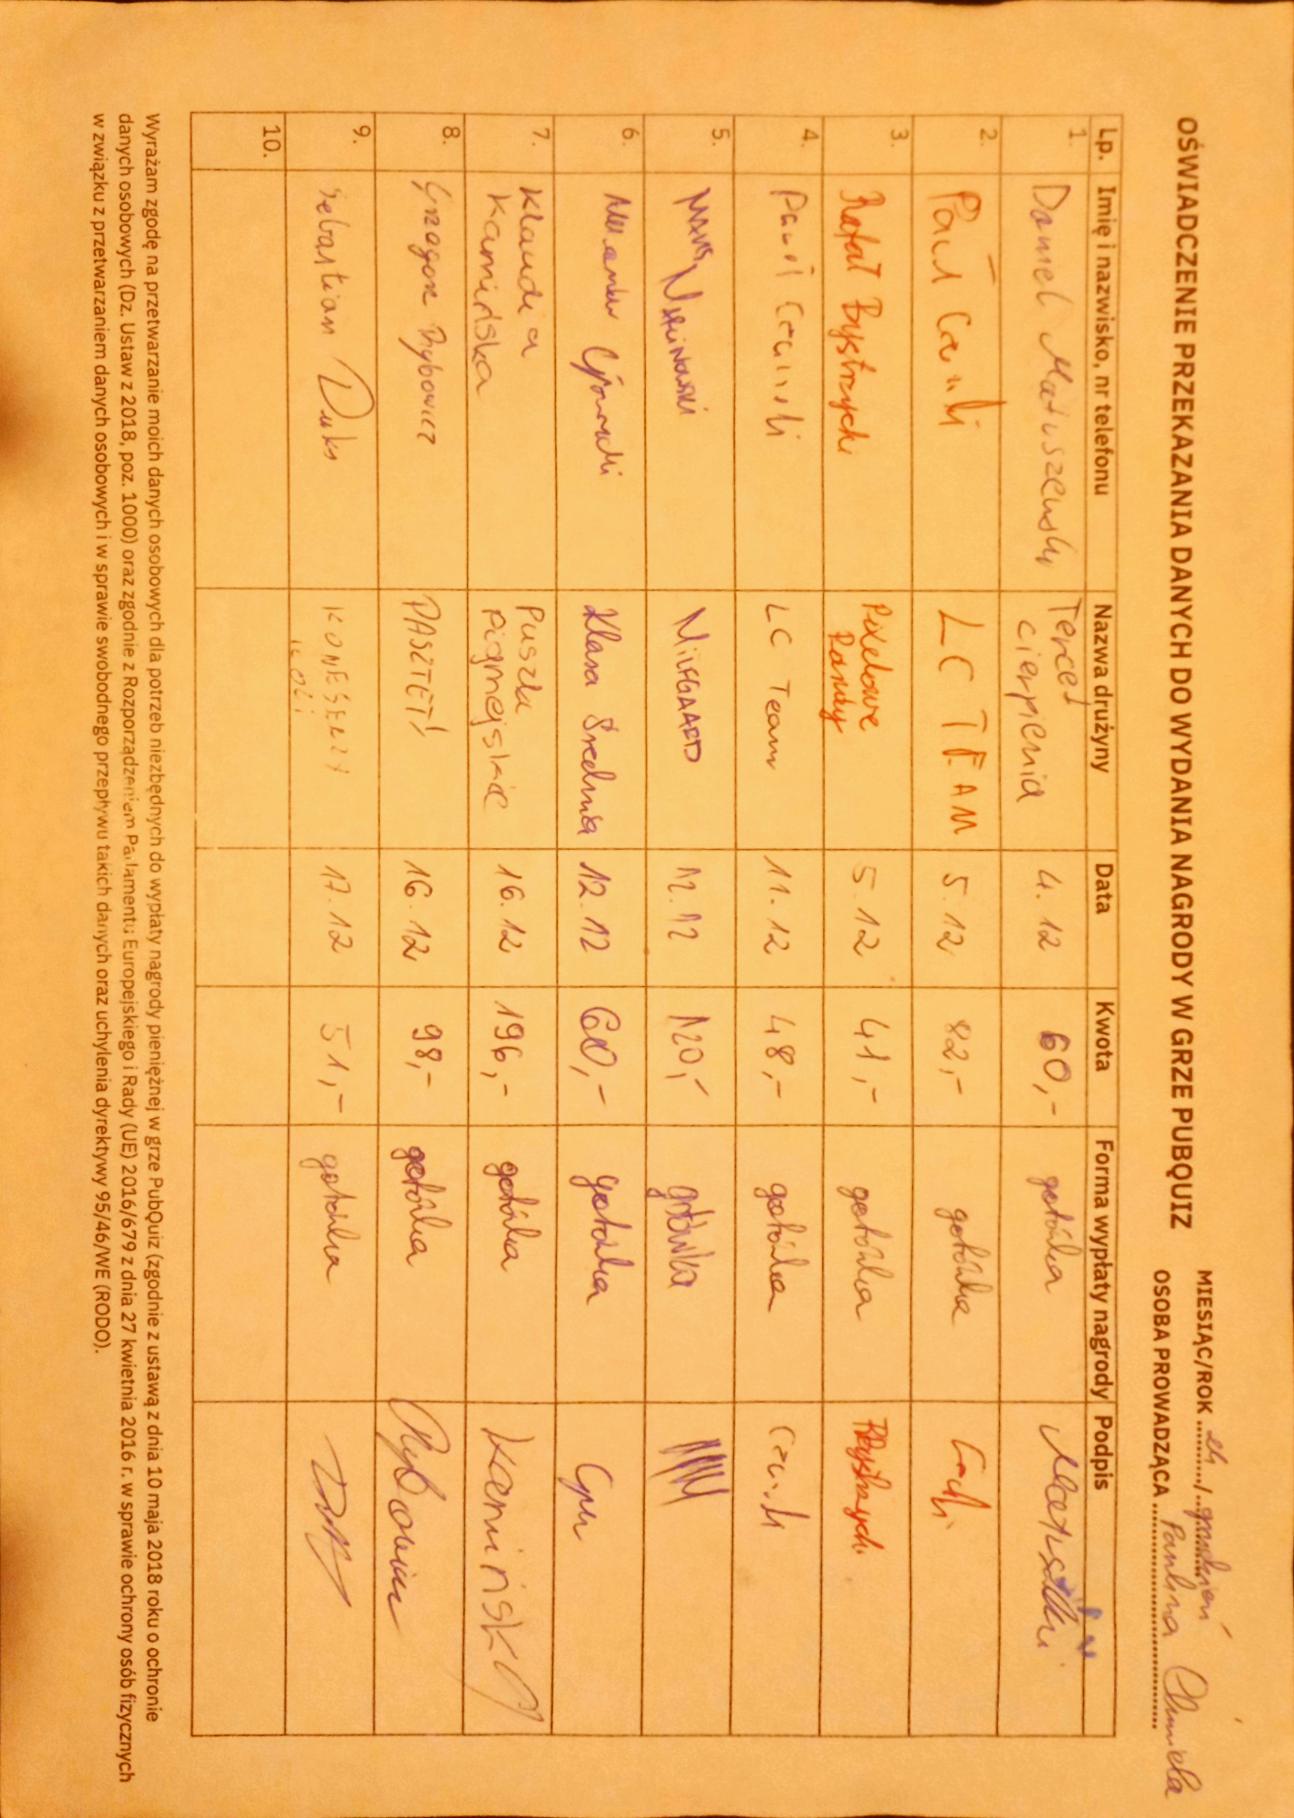 OŚWIADCZENIE PRZEKAZANIA DANYCH DO WYDANIA NAGRODY W GRZE PUBQUIZ
MIESIĄC/ROK ......../.. grudzień
OSOBA PROWADZĄCA .. Paulina
Lp. Imię i nazwisko, nr telefonu Nazwa drużyny Data Kwota Forma wypłaty nagrody Podpis
1. Daniel Matuszewski Tercet cierpienia 4.12 60,- gotówka
2. LC TEAM 5.12 82,- gotówka
3. Rafał Bystrzycki Pixelowe Pandy 5.12 41,- gotówka
4. Paweł LC Team 11.12 48,- gotówka
5. NILFGAARD 12.12 120,- gotówka
6. Klasa Średnia 12.12 60,- gotówka
7. Klaudia Kamińska Puszki Pigmejskie 16.12 196,- gotówka Kamińska
8. Grzegorz Rybowicz PASZTET! 16.12 98,- gotówka
9. Sebastian Duks 17.12 51,- gotówka
10.
Wyrażam zgodę na przetwarzanie moich danych osobowych dla potrzeb niezbędnych do wypłaty nagrody pieniężnej w grze PubQuiz (zgodnie z ustawą z dnia 10 maja 2018 roku o ochronie
danych osobowych (Dz. Ustaw z 2018, poz. 1000) oraz zgodnie z Rozporządzeniem Parlamentu Europejskiego i Rady (UE) 2016/679 z dnia 27 kwietnia 2016 r. w sprawie ochrony osób fizycznych
w związku z przetwarzaniem danych osobowych i w sprawie swobodnego przepływu takich danych oraz uchylenia dyrektywy 95/46/WE (RODO).